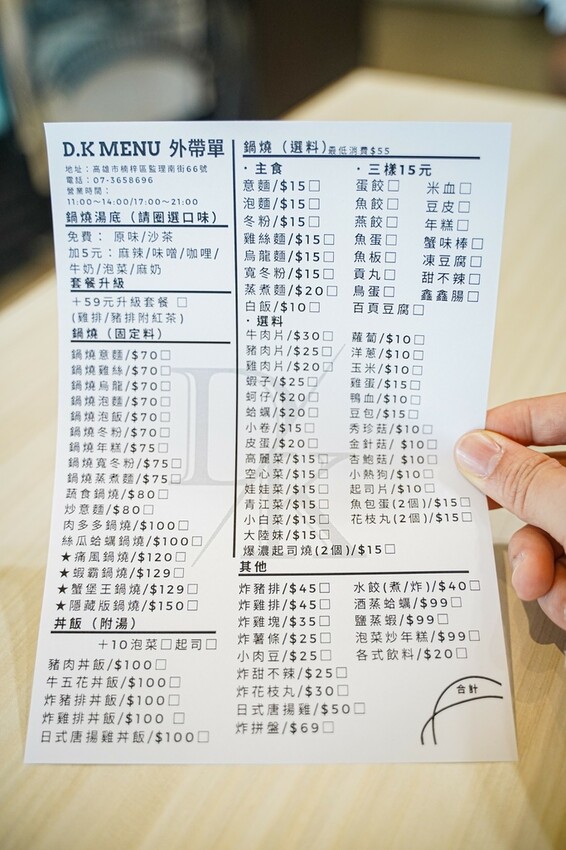 D.K MENU 外帶單
地址：高雄市楠梓區監理南街66號
電話：07-3658696
營業時間：
11:00~14:00/17:00~21:00
鍋燒湯底（請圈選口味）
免費： 原味/沙茶
加5元：麻辣/味噌/咖哩/
牛奶/泡菜/麻奶
套餐升級
＋59元升級套餐 □
(雞排/豬排附紅茶)
鍋燒（固定料）
鍋燒意麵/$70□
鍋燒雞絲/$70□
鍋燒烏龍/$70□
鍋燒泡麵/$70□
鍋燒泡飯/$70□
鍋燒冬粉/$70□
鍋燒年糕/$75□
鍋燒寬冬粉/$75□
鍋燒蒸煮麵/$75□
蔬食鍋燒/$80□
炒意麵/$80□
肉多多鍋燒/$100□
絲瓜蛤蠣鍋燒/$100□
★痛風鍋燒/$120□
★蝦霸鍋燒/$129□
★蟹堡王鍋燒/$129□
★隱藏版鍋燒/$150□
丼飯（附湯）
＋10泡菜□起司□
豬肉丼飯/$100□
牛五花丼飯/$100□
炸豬排丼飯/$100□
炸雞排丼飯/$100 □
日式唐揚雞丼飯/$100□
鍋燒（選料）最低消費$55
·主食
意麵/$15□
泡麵/$15□
冬粉/$15□
雞絲麵/$15□
烏龍麵/$15□
寬冬粉/$15□
蒸煮麵/$20□
白飯/$10□
·三樣15元
蛋餃□ 米血□
魚餃□ 豆皮□
燕餃□ 年糕□
魚蛋□ 蟹味棒□
魚板□ 凍豆腐□
貢丸□ 甜不辣□
鳥蛋□ 鑫鑫腸□
百頁豆腐□
·選料
牛肉片/$30□
豬肉片/$25□
雞肉片/$20□
蝦子/$25□
蚵仔/$20□
蛤蠣/$20□
小卷/$15□
皮蛋/$20□
高麗菜/$15□
空心菜/$15□
娃娃菜/$15□
青江菜/$15□
小白菜/$15□
大陸妹/$15□
爆濃起司燒(2個)/$15□
蘿蔔/$10□
洋蔥/$10□
玉米/$10□
雞蛋/$15□
鴨血/$10□
豆包/$15□
秀珍菇/$10□
金針菇/ $10□
杏鮑菇/ $10□
小熱狗/$10□
起司片/$10□
魚包蛋(2個)/$15□
花枝丸(2個)/$15□
其他
炸豬排/$45□
炸雞排/$45□
炸雞塊/$35□
炸薯條/$25□
小肉豆/$25□
炸甜不辣/$25□
炸花枝丸/$30□
日式唐揚雞/$50□
炸拼盤/$69□
水餃(煮/炸)/$40□
酒蒸蛤蠣/$99□
鹽蒸蝦/$99□
泡菜炒年糕/$99□
各式飲料/$20□
合計
DK